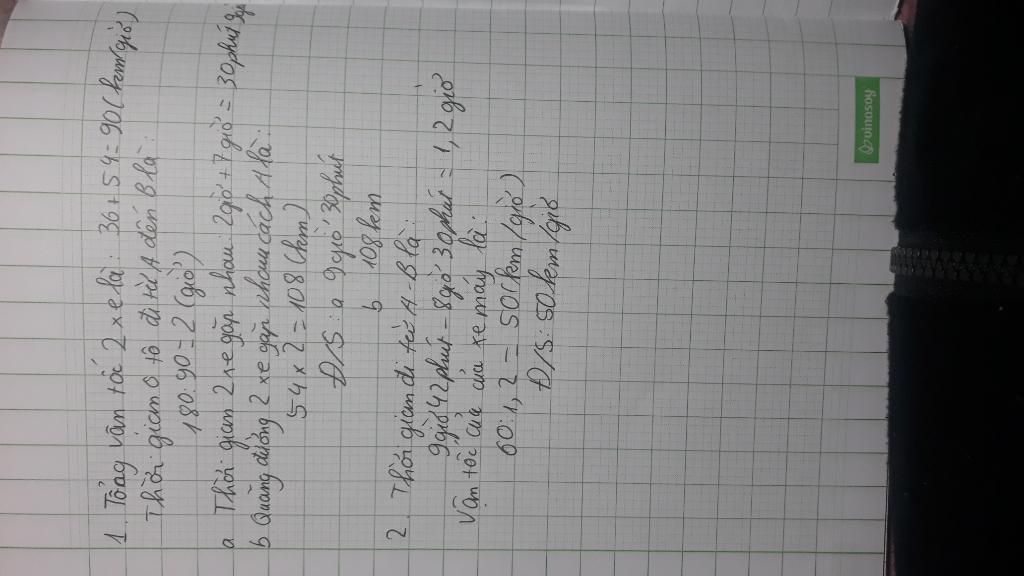 1. Tổng vân tốc 2 xe là: 36 + 54 = 90 (km/giờ)
Thời gian ô tô đi từ A đến B là:
180 : 90 = 2 (giờ)
a Thời gian 2 xe gặp nhau: 2giờ + 7giờ = 30phút
b Quảng đường 2 xe gặp nhau cách A là:
54 x 2 = 108 (km)
Đ/S: a 9giờ 30phút
b 108km
2. Thời gian đi từ A-B là:
9giờ 42phút - 8giờ 30phút = 1,2 giờ
Vận tốc của của xe máy là:
60:1,2 = 50(km/giờ)
Đ/S: 50km/giờ
vinasoy